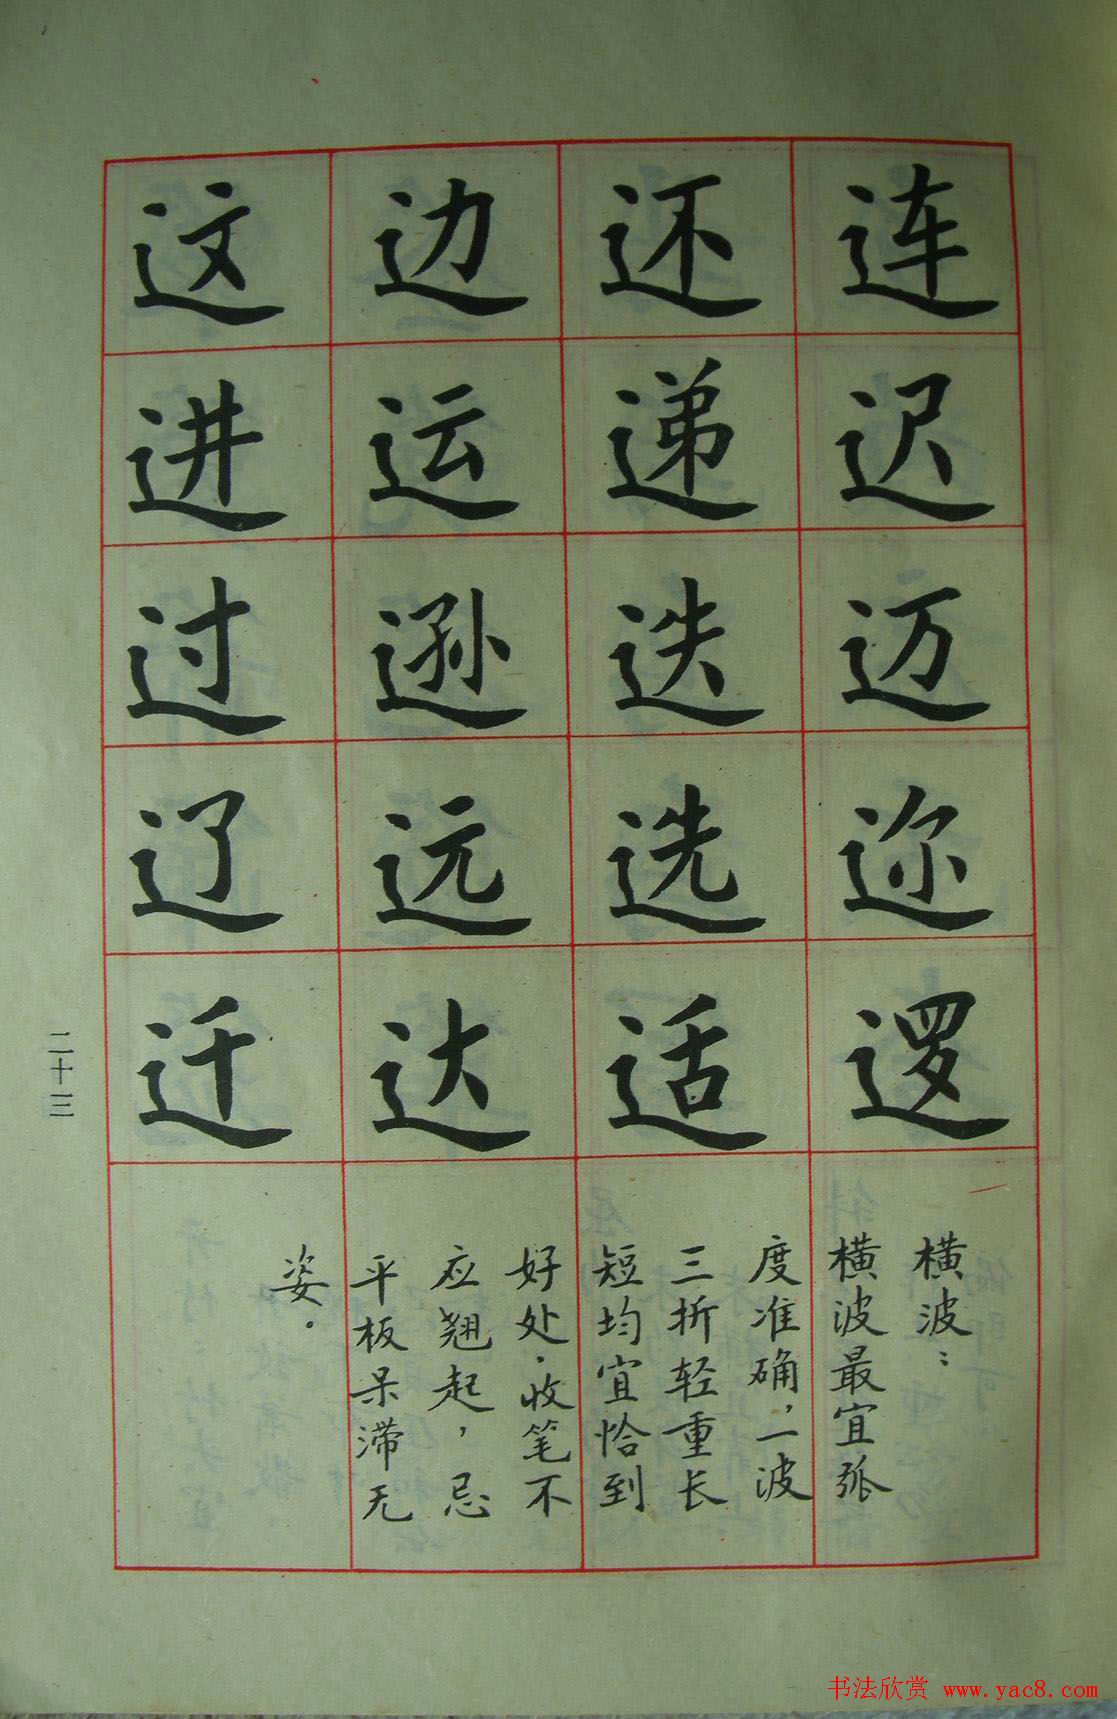 连迟迈迩逻
还递迭选适
边运逊远达
这进过辽迁
横波：
横波最宜弧
度准确，一波
三折轻重长
短均宜恰到
好处.收笔不
应翘起，忌
平板呆滞无
姿。
二十三
书法欣赏 www.yac8.com